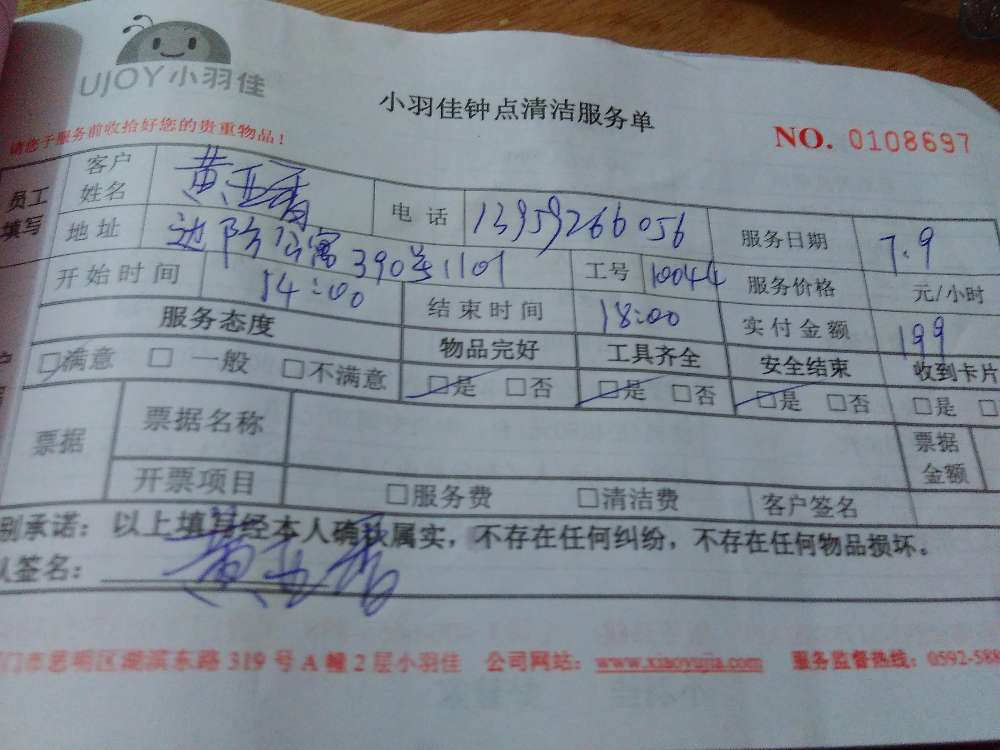 UJOY小羽佳
小羽佳钟点清洁服务单
请您于服务前收拾好您的贵重物品！
NO. 0108697
员工填写 客户姓名 黄亚香 电话 13959266056 服务日期 7.9
地址 边防公寓390号1101 工号 10044 服务价格 元/小时
开始时间 14:00 结束时间 18:00 实付金额 199
服务态度 物品完好 工具齐全 安全结束 收到卡片
□满意 □一般 □不满意 □是 □否 □是 □否 □是 □否 □是 □
票据 票据名称 票据金额
开票项目 □服务费 □清洁费 客户签名
别承诺：以上填写经本人确认属实，不存在任何纠纷，不存在任何物品损坏。
人签名：黄亚香
门市思明区湖滨东路319号A幢2层小羽佳 公司网站：www.xiaoyujia.com 服务监督热线：0592-588